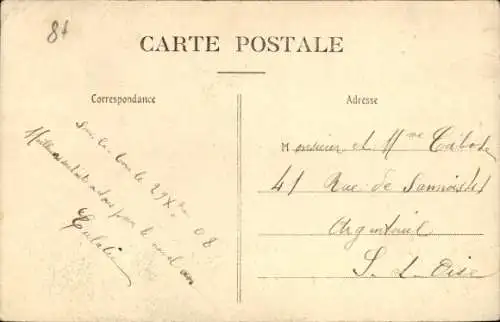 8f
CARTE POSTALE
Correspondance
le 29 Xbre 08
Meilleurs souhaits à tous pour le nouvel an
Eulalie
Adresse
Monsieur et Mme
41 Rue de Sannois
Argenteuil
S. et Oise